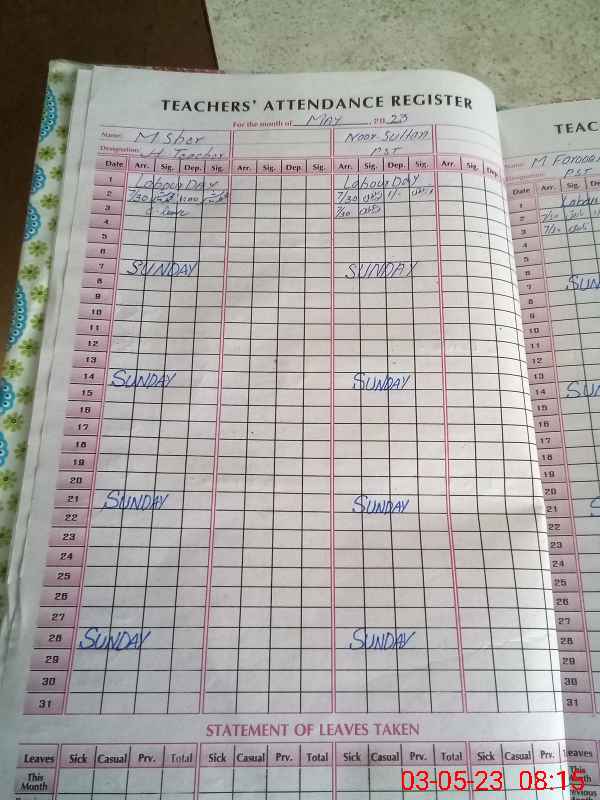 TEACHERS' ATTENDANCE REGISTER
For the month of MAY 2023
Name: M Sher Noor Sultan
Designation: H Teacher PST
Date Arr. Sig. Dep. Sig. Arr. Sig. Dep Sig. Arr. Sig. Dep. Sig. Arr. Sig. Dep
1 Labour DAY Labour DAY
2 7/30 7/30
3 7/30
4
5
6
7 SUNDAY SUNDAY
8
9
10
11
12
13
14 SUNDAY SUNDAY
15
16
17
18
19
20
21 SUNDAY SUNDAY
22
23
24
25
26
27
28 SUNDAY SUNDAY
29
30
31
STATEMENT OF LEAVES TAKEN
Leaves Sick Casual Prv. Total Sick Casual Prv. Total Sick Casual Prv. Total Sick Casual Prv.
This
Month
TEAC
Name: M Farooq
PST
Date Arr. Sig. Dep
1
2 7/30
3 7/30
4
5
6
7 SUN
8
9
10
11
12
13
14 SUN
15
16
17
18
19
20
21 S
22
23
24
25
26
27
28
29
30
31
Leaves
This
Month
03-05-23 08:15